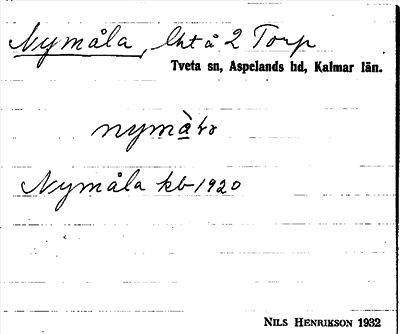 Nymåla, 2 Torp
Tveta sn, Aspelands hd, Kalmar län.
Nymåla kb 1920
NILS HENRIKSON 1932